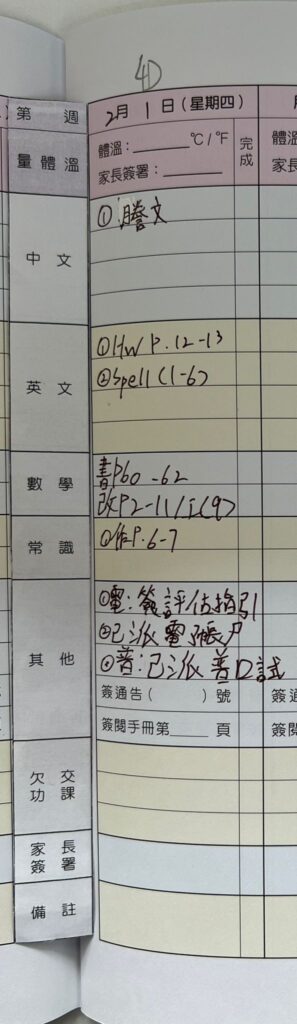 4D
第 週
2月 1 日 (星期四)
量體溫
體溫：______°C/°F
家長簽署：______
完成
中文
① 謄文
英文
①HW P.12-13
②Spell (1-6)
數學
書P60-62
改P2-11/i(9)
常識
①作P.6-7
其他
①電：簽評估指引
②已派電子帳戶
④普：已派普口試
簽通告( )號
簽閱手冊第____頁
欠交功課
家長簽署
備註